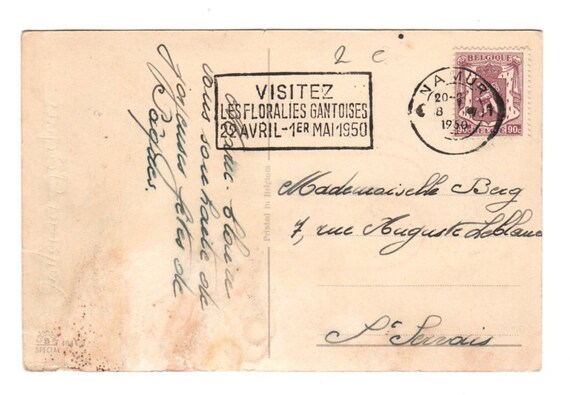 2 c
VISITEZ
LES FLORALIES GANTOISES
22 AVRIL-1ER MAI 1950
BELGIQUE
NAMUR
20-
8 VI
1950
90c 90c
vous souhaite de
joyeuses fêtes de
Pâques.
Printed in Belgium
Mademoiselle Berg
7, rue Auguste Leblanc
St Servais
SPECIAL